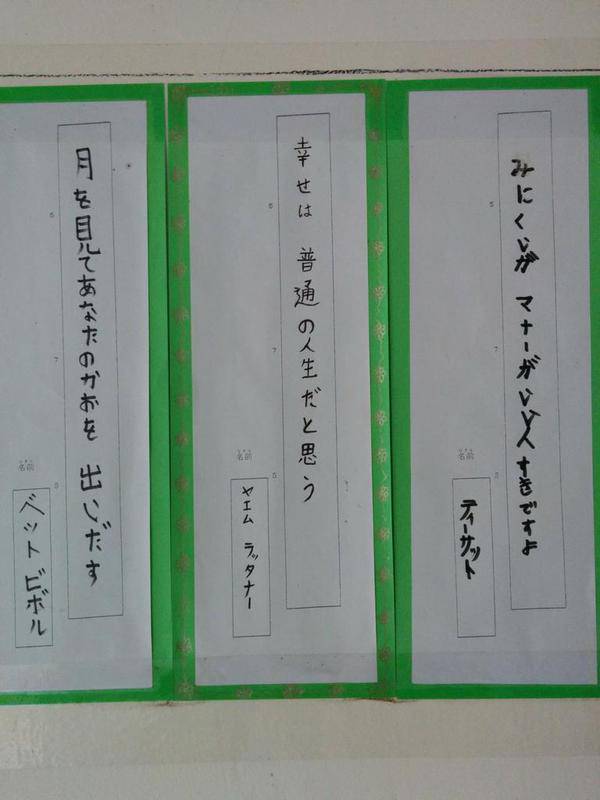 みにくいが マナーがいい人すきですよ
5
7
5
名前
ティーサット
幸せは 普通の人生だと思う
5
7
5
名前
ヤエム ラッタナー
月を見てあなたのかおを 出いだす
5
7
5
名前
ベット ビボル